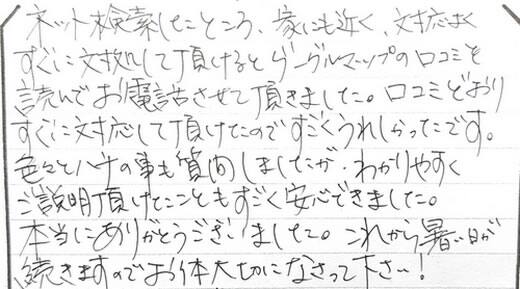 ネット検索したところ、家にも近く、対応よく
すぐに対処して頂けるとグーグルマップの口コミを
読んでお電話させて頂きました。口コミどおり
すぐに対応して頂けたのですごくうれしかったです。
色々とハチの事も質問しましたが、わかりやすく
ご説明頂けたこともすごく安心できました。
本当にありがとうございました。これから暑い日が
続きますのでお体大切になさって下さい!